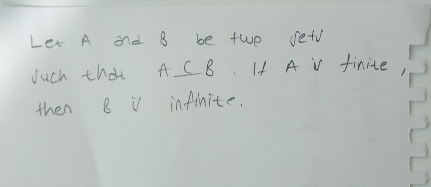 Let A and B be two sets
such that A ⊆ B. If A is finite,
then B is infinite.